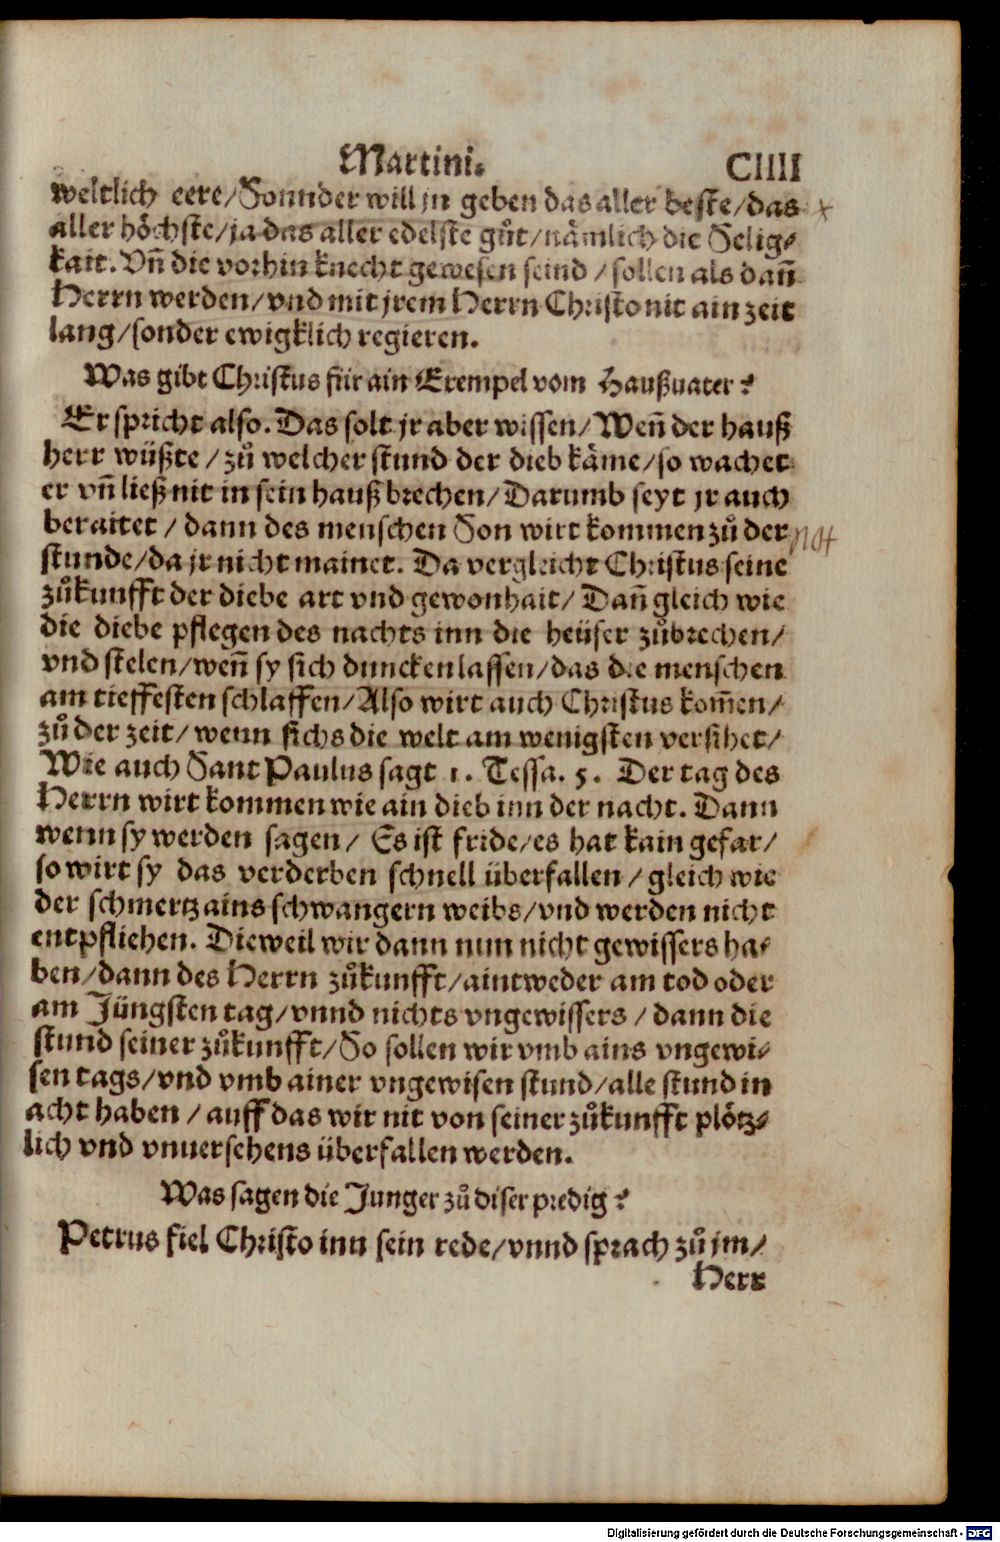 Martini. CIIII
weltlich eere/ Sonnder will jn geben das aller beste/ das
aller hoͤchste/ ja das aller edelste guͦt/ naͤmlich die Selig⸗
kait. Vñ die vorhin knecht gewesen seind / sollen als dañ
Herrn werden/ vnd mit jrem Herrn Christo nit ain zeit
lang/ sonder ewigklich regieren.
Was gibt Christus für ain Exempel vom Haußuater?
Er spricht also. Das solt jr aber wissen/ Weñ der hauß
herr wüßte / zuͦ welcher stund der dieb kaͤme/ so wachet
er vñ ließ nit in sein hauß brechen/ Darumb seyt jr auch
beraitet / dann des menschen Son wirt kommen zuͦ der
stunde/ da jr nicht mainet. Da vergleicht Christus seine
zuͦkunfft der diebe art vnd gewonhait/ Dañ gleich wie
die diebe pflegen des nachts inn die heüser zuͦbrechen/
vnd stelen/ weñ sy sich duncken lassen/ das die menschen
am tieffesten schlaffen/ Also wirt auch Christus kom̃en/
zuͦ der zeit/ wenn sichs die welt am wenigsten versihet/
Wie auch Sant Paulus sagt 1. Tessa. 5. Der tag des
Herrn wirt kommen wie ain dieb inn der nacht. Dann
wenn sy werden sagen/ Es ist fride/ es hat kain gefar/
so wirt sy das verderben schnell überfallen / gleich wie
der schmertz ains schwangern weibs/ vnd werden nicht
entpfliehen. Dieweil wir dann nun nicht gewissers ha⸗
ben/ dann des Herrn zuͦkunfft/ aintweder am tod oder
am Jüngsten tag/ vnnd nichts vngewissers / dann die
stund seiner zuͦkunfft/ So sollen wir vmb ains vngewi⸗
sen tags/ vnd vmb ainer vngewisen stund/ alle stund in
acht haben / auff das wir nit von seiner zuͦkunfft ploͤtz⸗
lich vnd vnuersehens überfallen werden.
Was sagen die Junger zuͦ diser predig?
Petrus fiel Christo inn sein rede/ vnnd sprach zuͦ jm/
Herr
Digitalisierung gefördert durch die Deutsche Forschungsgemeinschaft - DFG